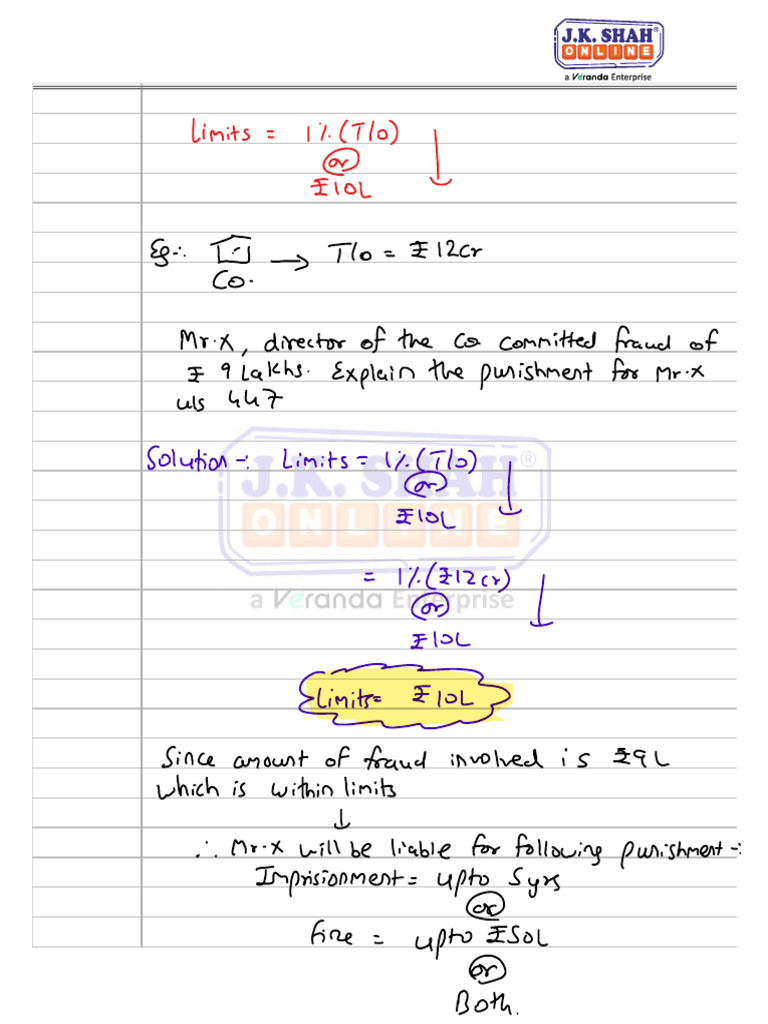 J.K. SHAH®
ONLINE
a Veranda Enterprise
Limits = 1% (T/o)
or
₹10L
Eg:- → T/o = ₹12cr
Co.
Mr.X, director of the co committed fraud of
₹ 9 Lakhs. Explain the punishment for Mr.X
u/s 447
Solution -: Limits = 1% (T/o)
or
₹10L
= 1% (₹12cr)
or
₹10L
Limits= ₹10L
Since amount of fraud involved is ₹9L
which is within limits
∴ Mr.X will be liable for following punishment -:
Imprisionment = upto 5yrs
or
fine = upto ₹50L
or
Both.
J.K. SHAH®
ONLINE
a Veranda Enterprise